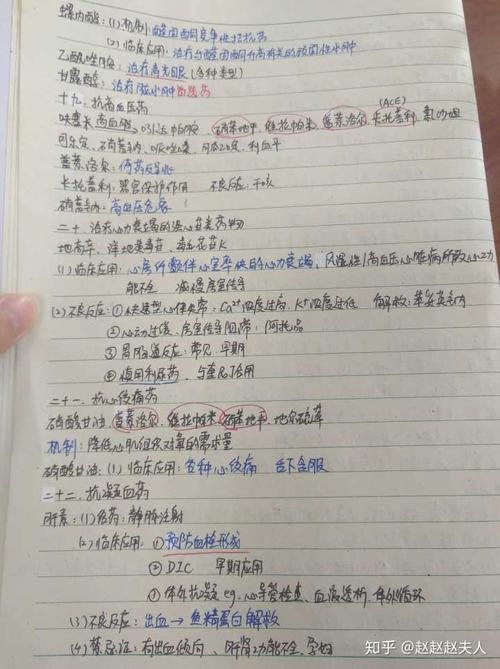 螺内酯：(1)机制：醛固酮竞争性拮抗药
(2) 临床应用：治疗与醛固酮升高有关的顽固性水肿
乙酰唑胺：治疗青光眼(各种类型)
甘露醇：治疗脑水肿首选药
十九、抗高血压药
(ACEI)
呋塞米 高血脂、硝苯地平、维拉帕米、普萘洛尔、卡托普利、氯沙坦
可乐定、硝普钠、哌唑嗪、利血平
普萘洛尔：停药反跳
卡托普利：器官保护作用 不良反应：干咳
硝普钠：高血压危象
二十、治疗心力衰竭的强心苷类药物
地高辛、洋地黄毒苷、毒毛花苷K
(1) 临床应用：心房纤颤伴心室率快的心力衰竭，风湿性/高血压心脏病所致心功
能不全 减慢房室传导
(2) 不良反应：①快速型心律失常：Ca²⁺浓度过高、K⁺浓度过低 解救：苯妥英钠
②心动过缓、房室传导阻滞：阿托品
③胃肠道反应：常见 早期
④慎用利尿药、与合用
二十一、抗心绞痛药
硝酸甘油、普萘洛尔、维拉帕米、硝苯地平、地尔硫䓬
机制：降低心肌组织对氧的需求量
硝酸甘油：(1) 临床应用：各种心绞痛 舌下含服
二十二、抗凝血药
肝素：(1) 给药：静脉注射
(2) 临床应用：①预防血栓形成
②DIC 早期应用
③体外抗凝 eg. 心导管检查、血液透析、体外循环
(3) 不良反应：出血→鱼精蛋白解救
(4) 禁忌证：有出血倾向、肝肾功能不全、孕妇
知乎 @赵赵赵夫人